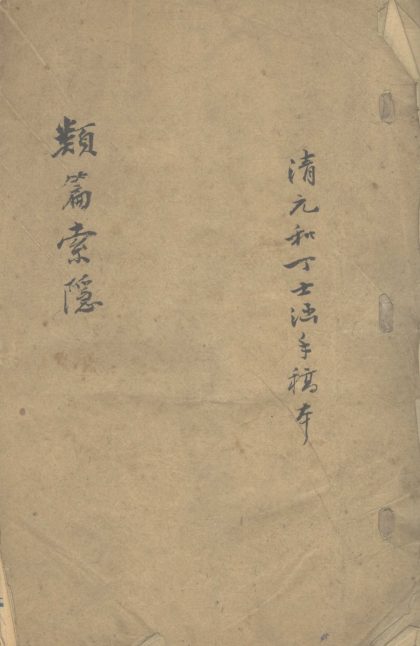 清元和丁士涵手稿本
類篇索隱